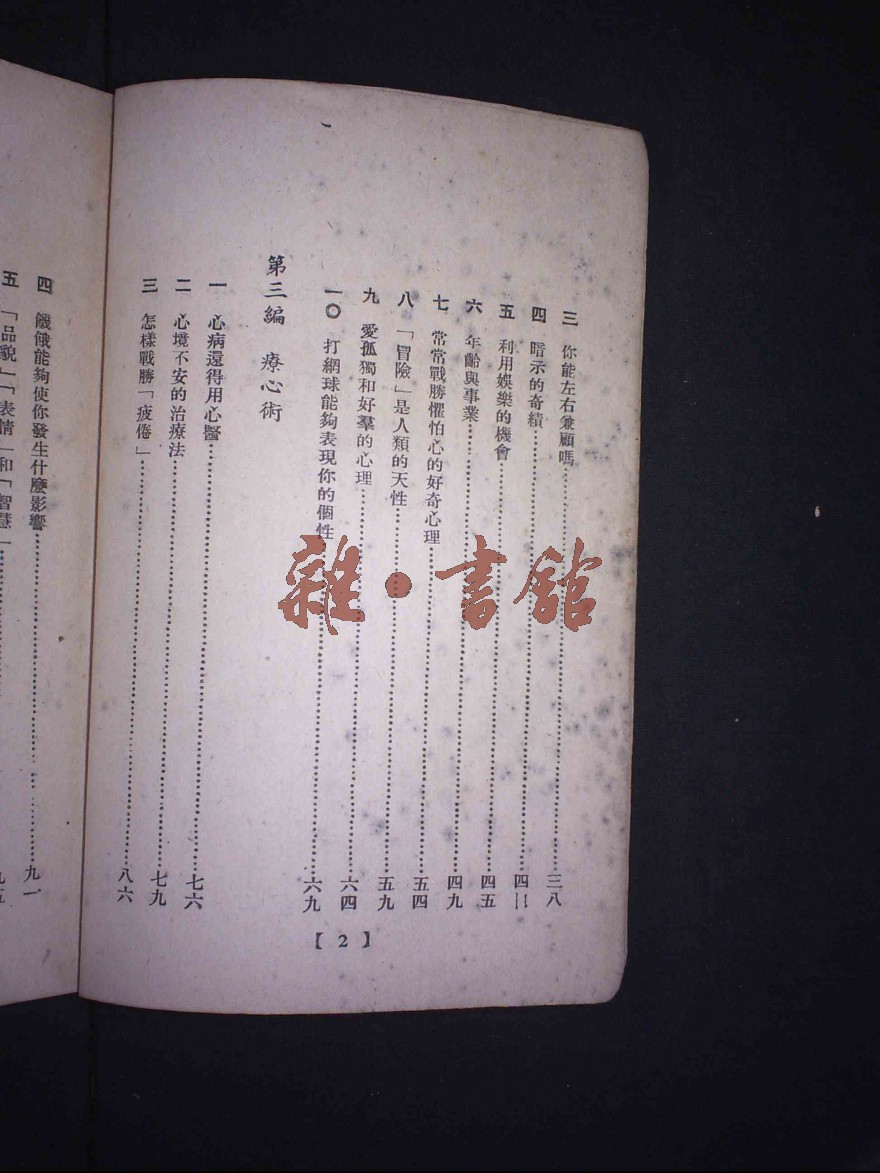 三 你能左右兼顧嗎 三八
四 暗示的奇績 四二
五 利用娛樂的機會 四五
六 年齡與事業 四九
七 常常戰勝懼怕心的好奇心理 五四
八 「冒險」是人類的天性 五九
九 愛孤獨和好羣的心理 六四
一〇 打網球能夠表現你的個性 六九
第三編 療心術
一 心病還得用心醫 七六
二 心境不安的治療法 七九
三 怎樣戰勝「疲倦」 八六
【2】
四 饑餓能夠使你發生什麼影響 九一
五 「品貌」「表情」和「智慧」 九五
雜·書館